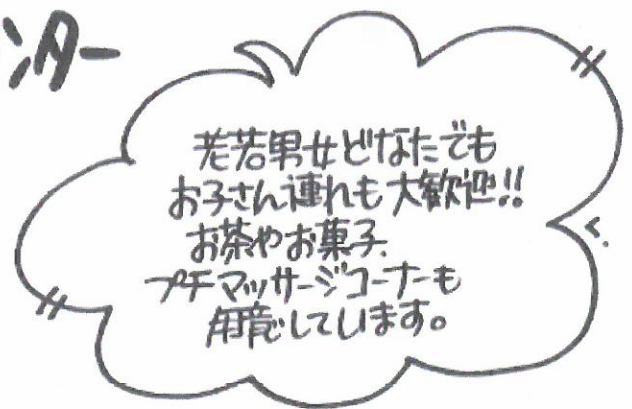 ンター
老若男女どなたでも
お子さん連れも大歓迎!!
お茶やお菓子、
プチマッサージコーナーも
用意しています。